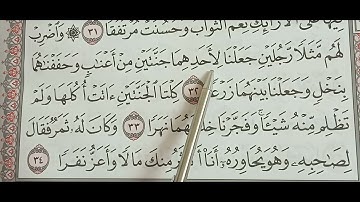 فِيهَا عَلَى ٱلْأَرَآئِكِ نِعْمَ ٱلثَّوَابُ وَحَسُنَتْ مُرْتَفَقًا ٣١ ۞ وَٱضْرِبْ
لَهُم مَّثَلًا رَّجُلَيْنِ جَعَلْنَا لِأَحَدِهِمَا جَنَّتَيْنِ مِنْ أَعْنَٰبٍ وَحَفَفْنَٰهُمَا
بِنَخْلٍ وَجَعَلْنَا بَيْنَهُمَا زَرْعًا ٣٢ كِلْتَا ٱلْجَنَّتَيْنِ ءَاتَتْ أُكُلَهَا وَلَمْ
تَظْلِم مِّنْهُ شَيْـًٔا وَفَجَّرْنَا خِلَٰلَهُمَا نَهَرًا ٣٣ وَكَانَ لَهُۥ ثَمَرٌ فَقَالَ
لِصَٰحِبِهِۦ وَهُوَ يُحَاوِرُهُۥٓ أَنَا۠ أَكْثَرُ مِنكَ مَالًا وَأَعَزُّ نَفَرًا ٣٤